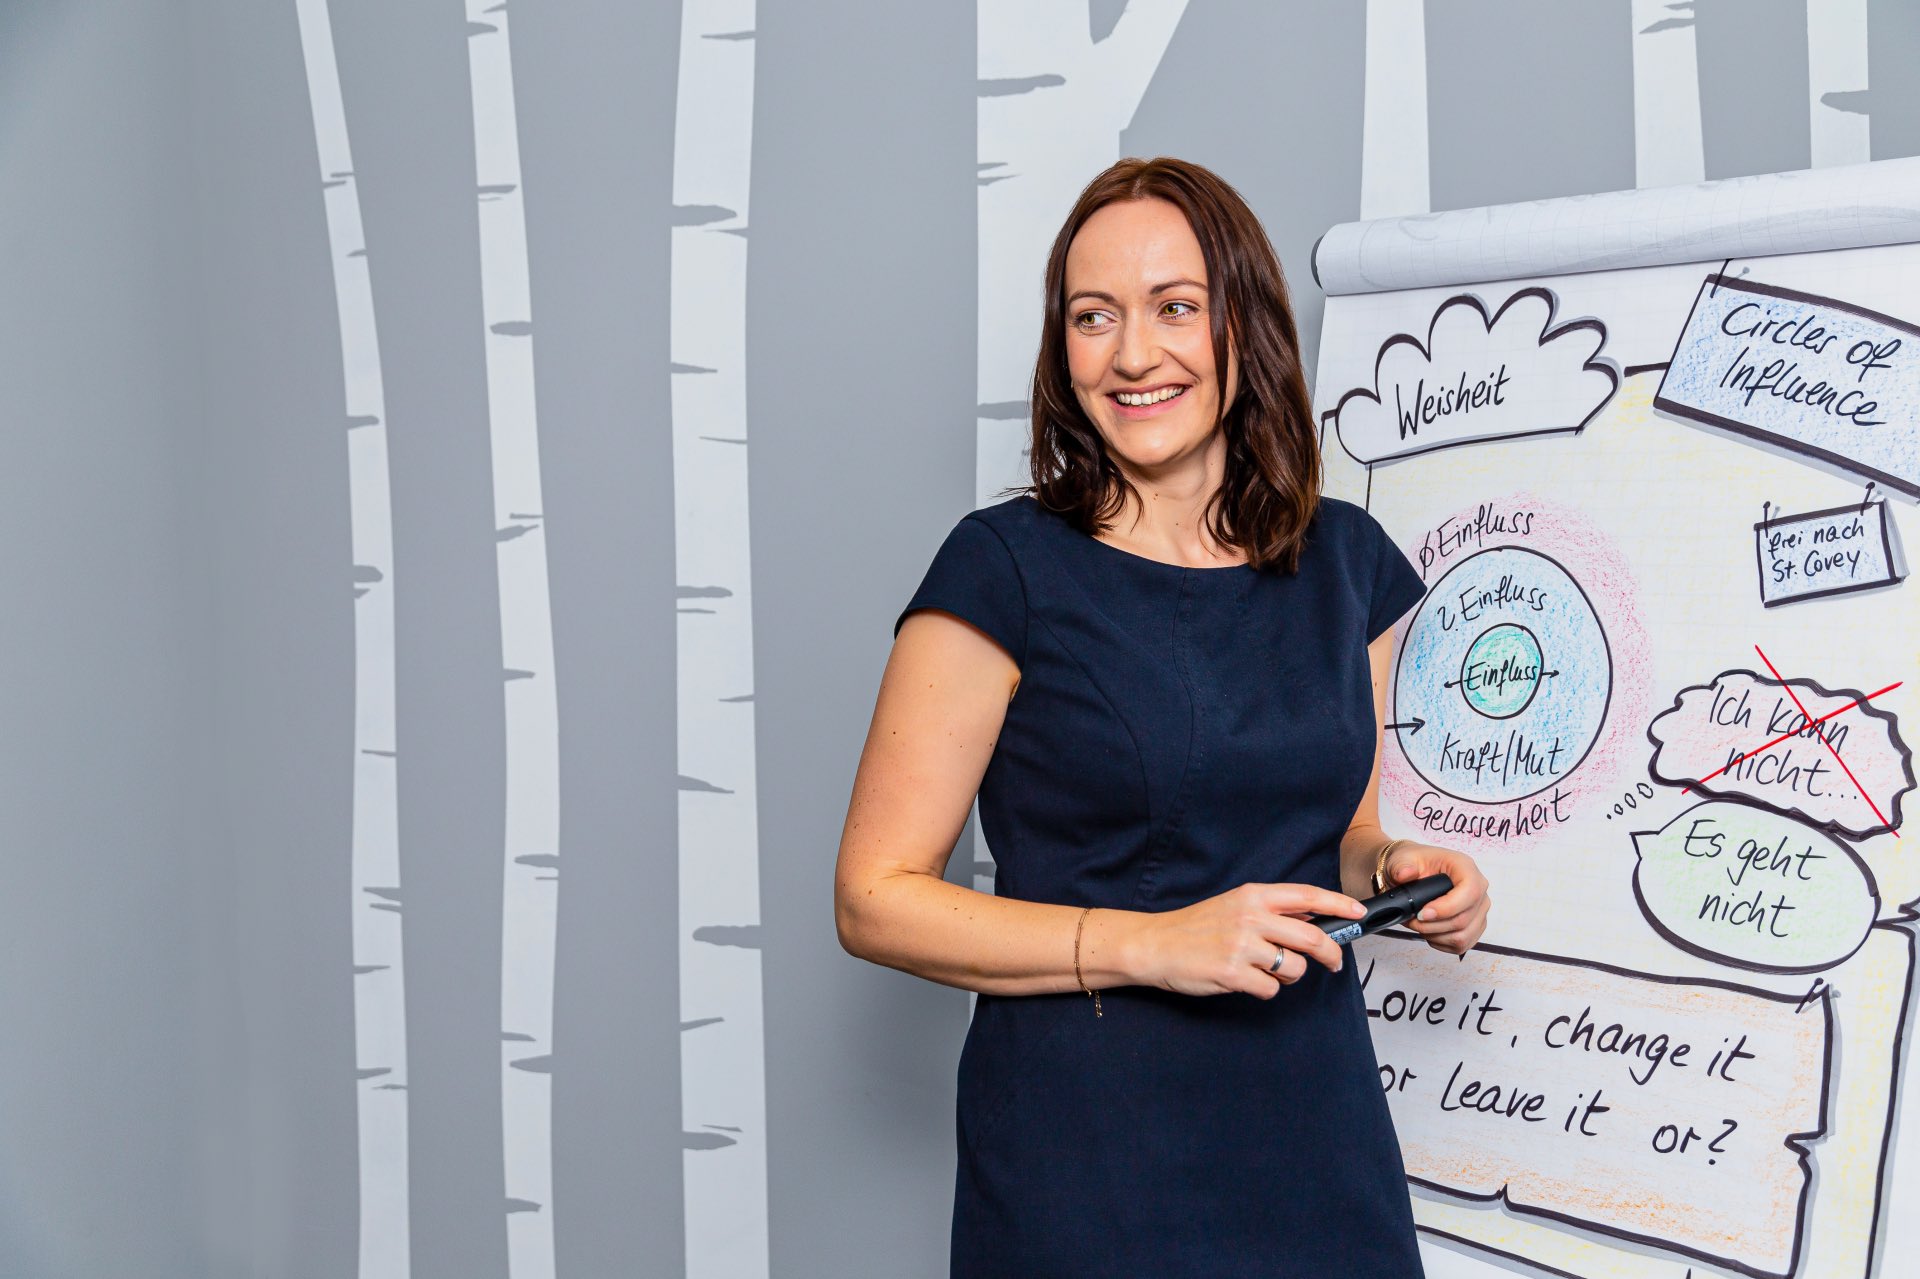 Weisheit
Circles of
Influence
frei nach
St. Covey
∅ Einfluss
2. Einfluss
Einfluss
Kraft/Mut
Gelassenheit
Ich kann
nicht...
Es geht
nicht
Love it, change it
or leave it or?